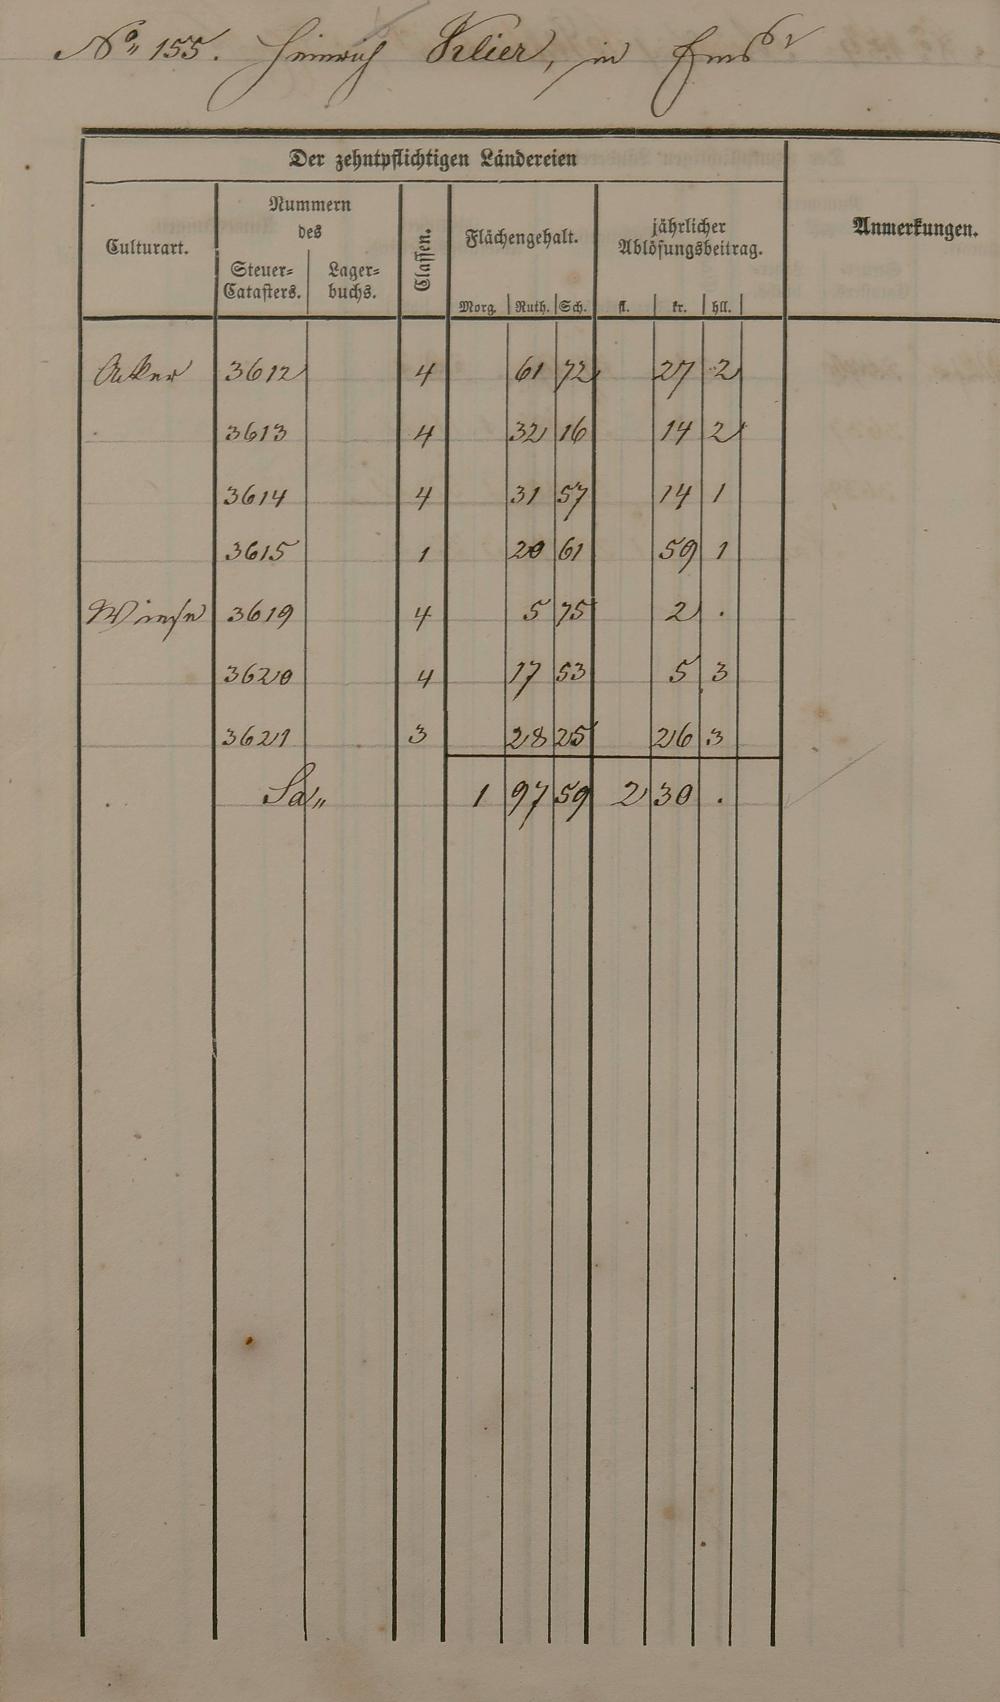 No 155. Heinrich Klier, in Ems
Der zehntpflichtigen Ländereien
Culturart. Nummern des Steuer=Catasters. Lager=buchs. Classen. Flächengehalt. Morg. Ruth. Sch. jährlicher Ablösungsbeitrag. fl. kr. hll. Anmerkungen.
Acker 3612 4 61 72 27 2
3613 4 32 16 14 2
3614 4 31 57 14 1
3615 1 20 61 59 1
Wiese 3619 4 5 75 2 .
3620 4 17 53 5 3
3621 3 28 25 26 3
Sa„ 1 97 59 2 30 .